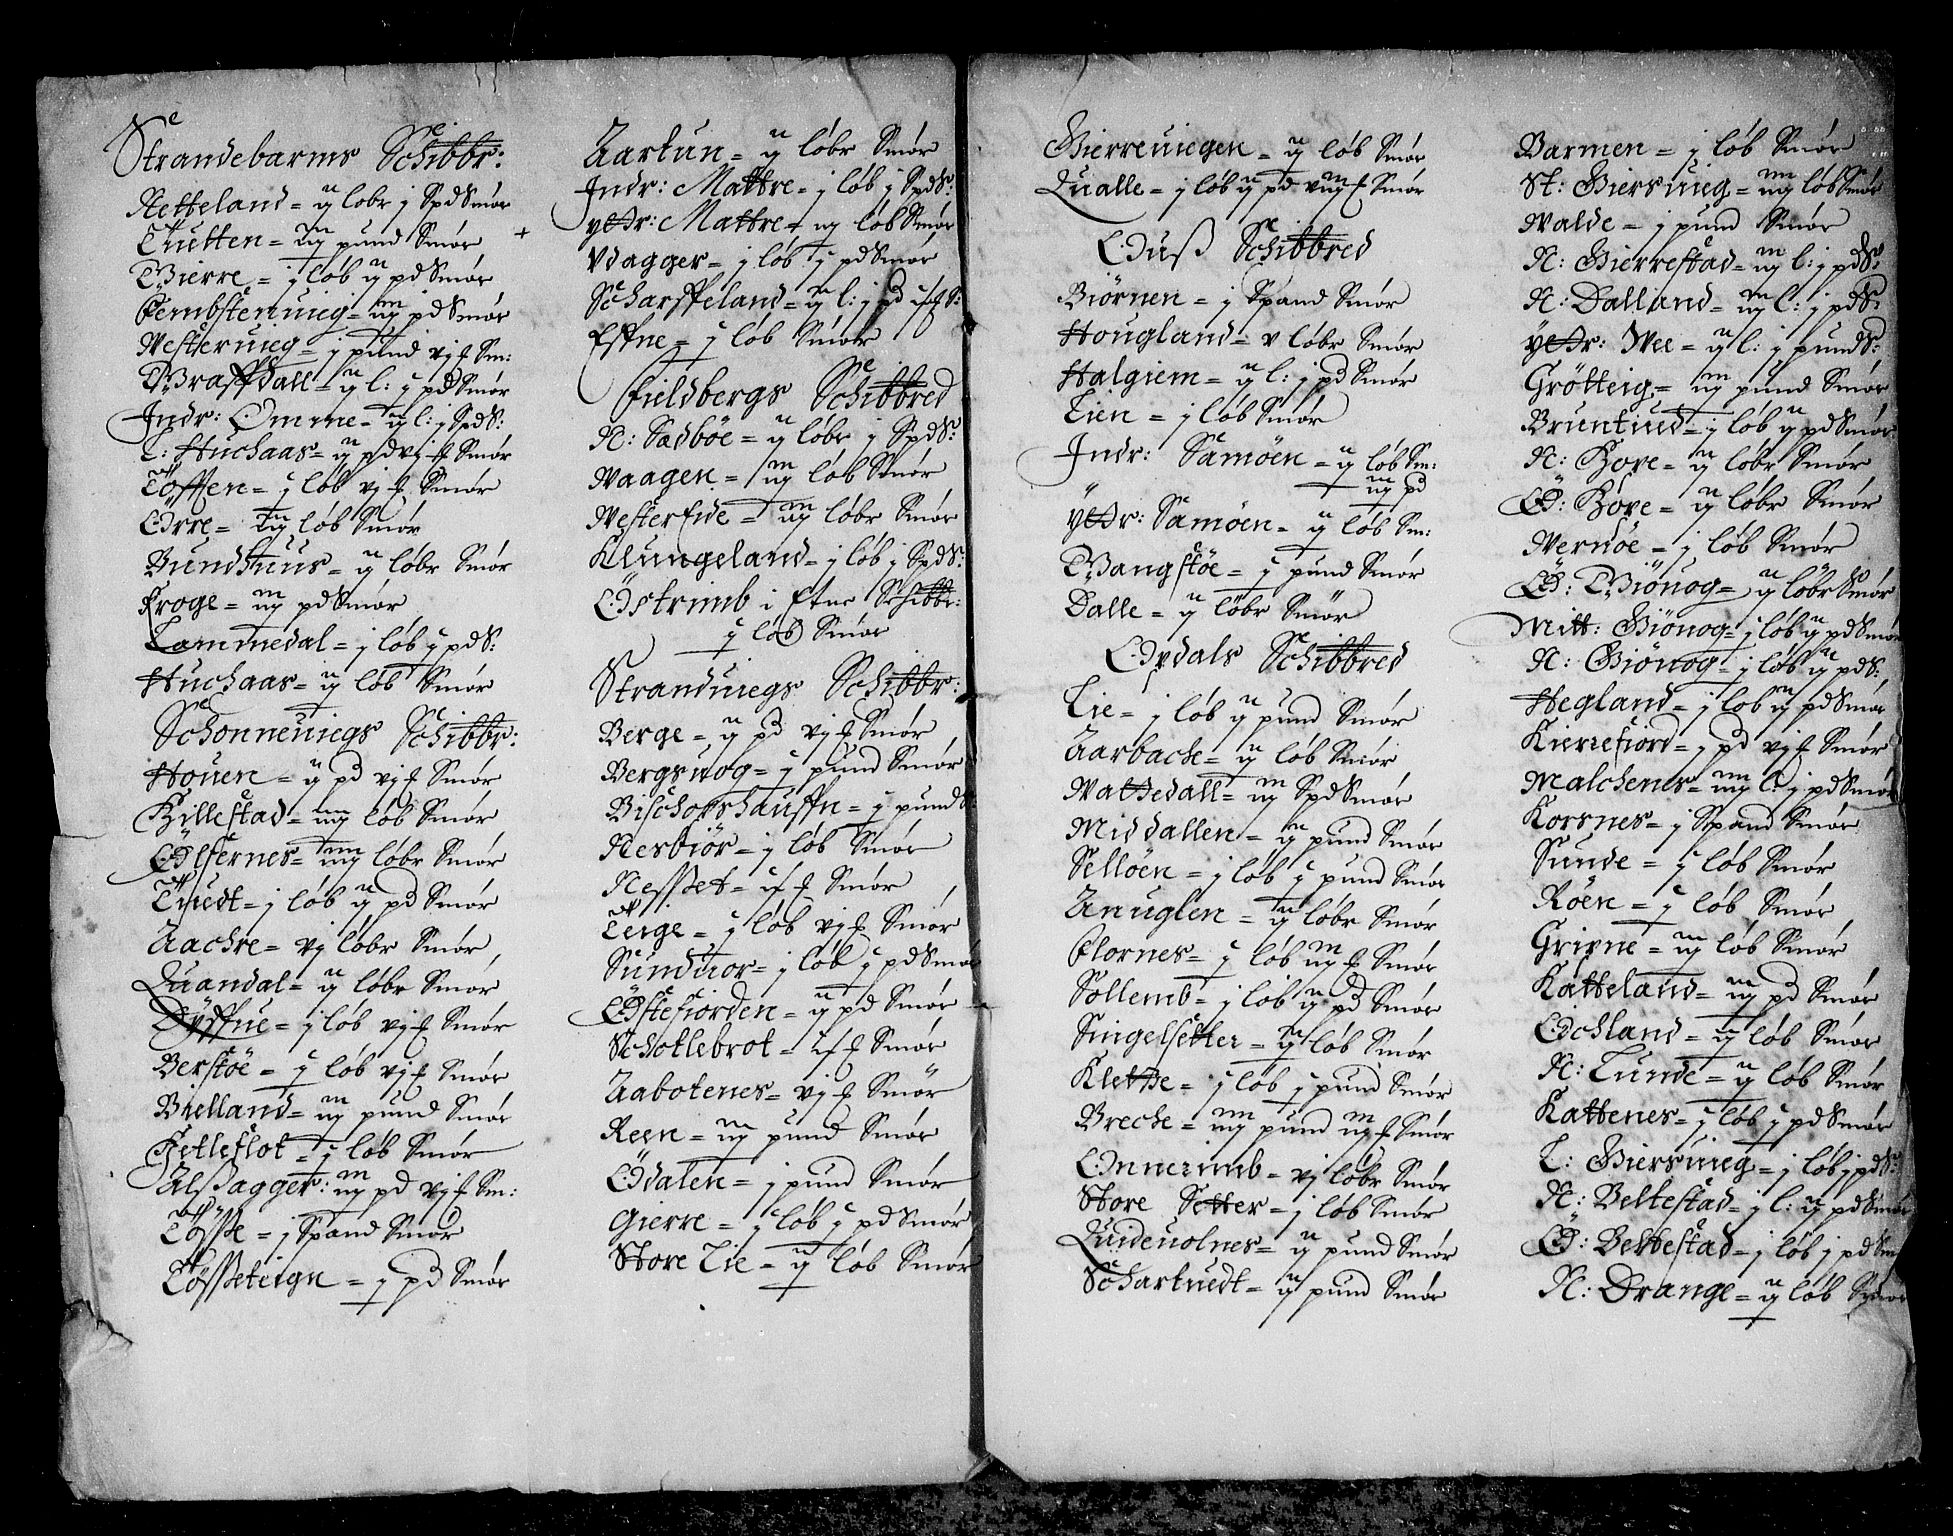 Strandebarms Schibbr:
Netteland = ij løbr j Spd Smør
Tutten = iiij pund Smør
Gierre = j løb ij pd Smør
Fembstenuieg = iiij pd Smør
Westeruieg = j pund vj £ Sm:
Graffdall = ij l: j pd Smør
Indr: Omme = ij l: j Spd S:
L: Huchaas = ij pd vj £ Smør
Tøfften = j løb vj £ Smør
Ørre = iij løb Smør
Bundhuus = ij løbr Smør
Kroge = iij pd Smør
Lammedal = j løb j pd S:
Huchaas = ij løb Smør
Schonneuiegs Schibbr:
Houen = ij pd vj £ Smør
Gillestad = iiij løb Smør
Ølfernes = iiij løbr Smør
Tuedt = j løb ij pd Smør
Aachre = vj løbr Smør
Quandal = ij løbr Smør
Dyffue = j løb vj £ Smør
Berstøe = j løb vj £ Smør
Bielland = iij pund Smør
Ketleflot = j løb Smør
Alßagger: iij pd vj £ Sm:
Tøsße = j Spand Smør
Tøsßeteign = j pd Smør
Aartun = ij løbr Smør
Indr: Mattre = j løb j Spd S:
yttr: Mattre = iij løb Smør
Vdagger = j løb j pd Smør
Scharffeland = ij l: j pd if £ S:
Effne = j løb Smør
Fieldbergs Schibbred
N: Sadbøe = ij løbr j Spd S:
Waagen = iij løb Smør
Westereide = iij løbr Smør
Klungeland = j løb j Spd S:
Østrimb i Etne Schibbr:
j løb Smør
Stranduiegs Schibbr:
Berge = ij pd vj £ Smør
Bergsuog = j pund Smør
Bischopshauffn = j pund S:
Nesbiør = j løb Smør
Nesßet = if £ Smør
Teige = j løb vj £ Smør
Sunduor = j løb j pd Smør
Østefiorden = ij pd Smør
Schotlebrot = if £ Smør
Aabotenes = vj £ Smør
Reen = iij pund Smør
Ødalen = j pund Smør
Gierre = j løb j pd Smør
Store Lie = ij løb Smør
Gierreuiegen = ij løb Smør
Qualle = j løb ij pd viij £ Smør
Ouß Schibbred
Biørnen = j Spand Smør
Hougland = v løbr Smør
Halgiem = ij l: j pd Smør
Lien = j løb Smør
Indr: Samøen = ij løb Sm:
iij pd
yttr: Samøen = ij løb Sm:
Vangstøe = j pund Smør
Dalle = ij løbr Smør
Opdals Schibbred
Lie = j løb ij pund Smør
Aarbache = ij løb Smør
Wattedall = iij Spd Smør
Middallen = ij pund Smør
Selløen = j løb j pund Smør
Anuglen = ij løbr Smør
Flornes = j løb iij £ Smør
Søllemb = j løb ij pd Smør
Singelsetter = ij løb Smør
Kleppe = j løb j pund Smør
Breche = iiij pund iij £ Smør
Onnerimb = vj løbr Smør
Store Setter = j løb Smør
Quideuolnes = ij pund Smør
Schartuedt = ij pund Smør
Barmen = j løb Smør
St: Giersuieg = iiij løb Smør
Walde = j pund Smør
N: Gierrestad = iij l: j pd S:
N: Dalland = iij l: j pd S:
yttr: Wee = ij l: j pund S:
Grøtteig = iij pund Smør
Bruntiud = j løb ij pd Smør
N: Hope = ij løbr Smør
Ø: Høpe = ij løbr Smør
Wernøe = j løb Smør
Ø: Giønog = ij løbr Smør
Mitt: Giønog = j løb ij pd Smør
N: Giønog = j løb ij pd S:
Hegland = j løb ij pd Smør
Kierrefiord = j pd vj £ Smør
Malchenes = iiij l: j pd Smør
Korsnes = j Spand Smør
Sunde = j løb Smør
Røen = j løb Smør
Gripne = iij løb Smør
Katteland = iij pd Smør
Ochland = ij løb Smør
N: Lunde = ij løb Smør
Kattenes = j løb j pd Smør
L: Giersuieg = j løb j pd S:
N: Beltestad = j l: ij pd Smør
Ø: Beltestad = j løb j pd Sm
N: Drange = ij løb Smør